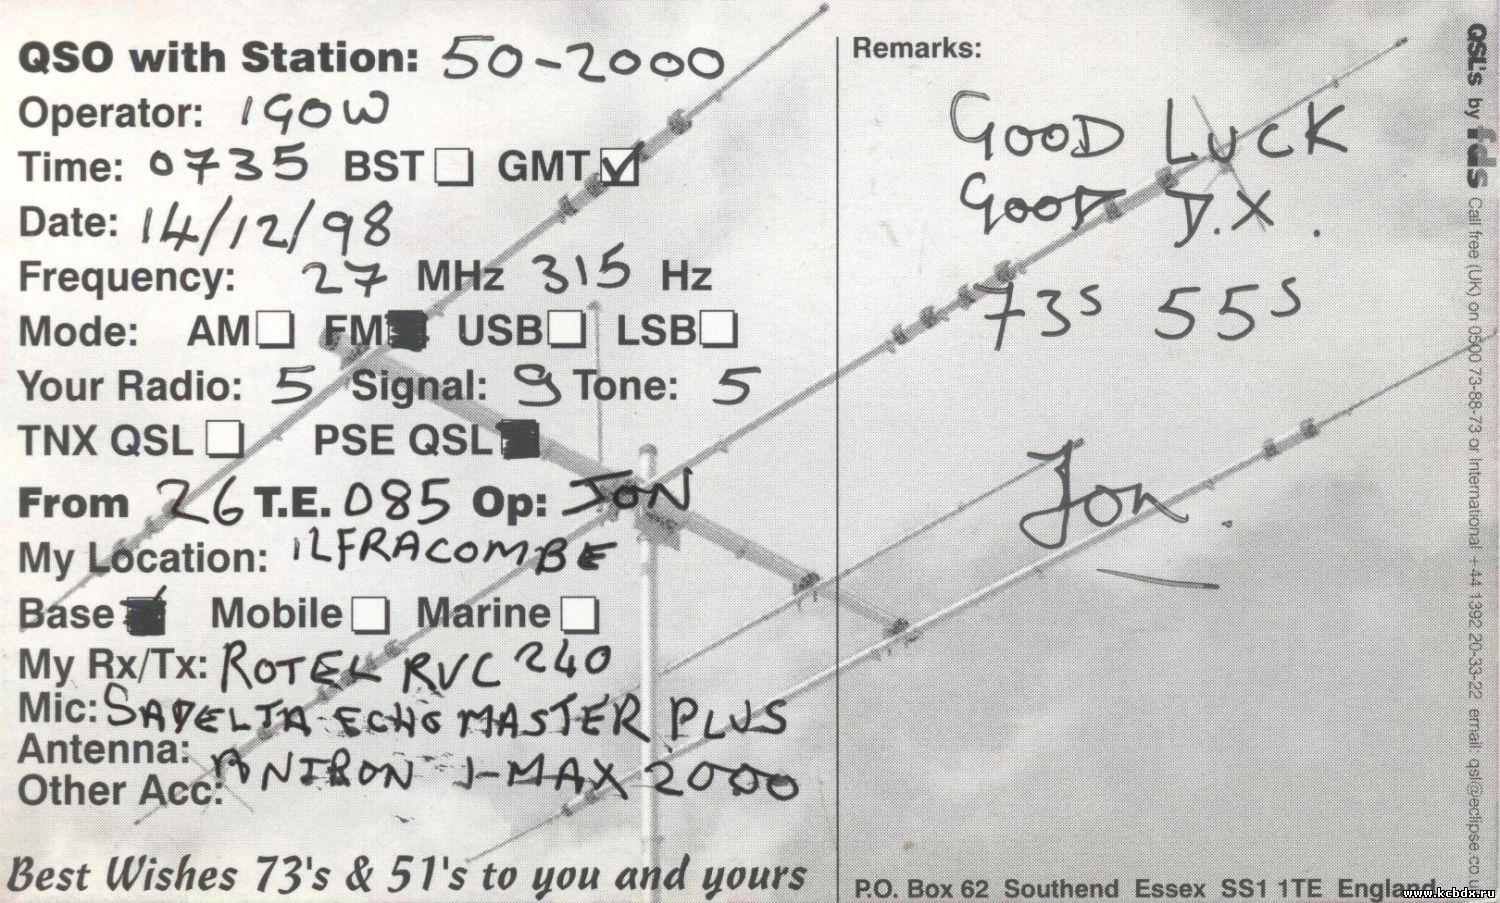 QSO with Station: 50-2000
Operator: IGOW
Time: 0735 BST GMT
Date: 14/12/98
Frequency: 27 MHz 315 Hz
Mode: AM FM USB LSB
Your Radio: 5 Signal: 9 Tone: 5
TNX QSL PSE QSL
From 26 T.E. 085 Op: JON
My Location: ILFRACOMBE
Base Mobile Marine
My Rx/Tx: ROTEL RVC 240
Mic: SADELTA ECHO MASTER PLUS
Antenna: ANTRON J-MAX 2000
Other Acc:
Best Wishes 73's & 51's to you and yours
Remarks:
GOOD LUCK
GOOD D.X.
73s 55s
Jon.
P.O. Box 62 Southend Essex SS1 1TE England
QSL's by fds Call free (UK) on 0500 73-88-73 or International +44 1392 20-33-22 email: qsl@eclipse.co.u
www.kcbdx.ru